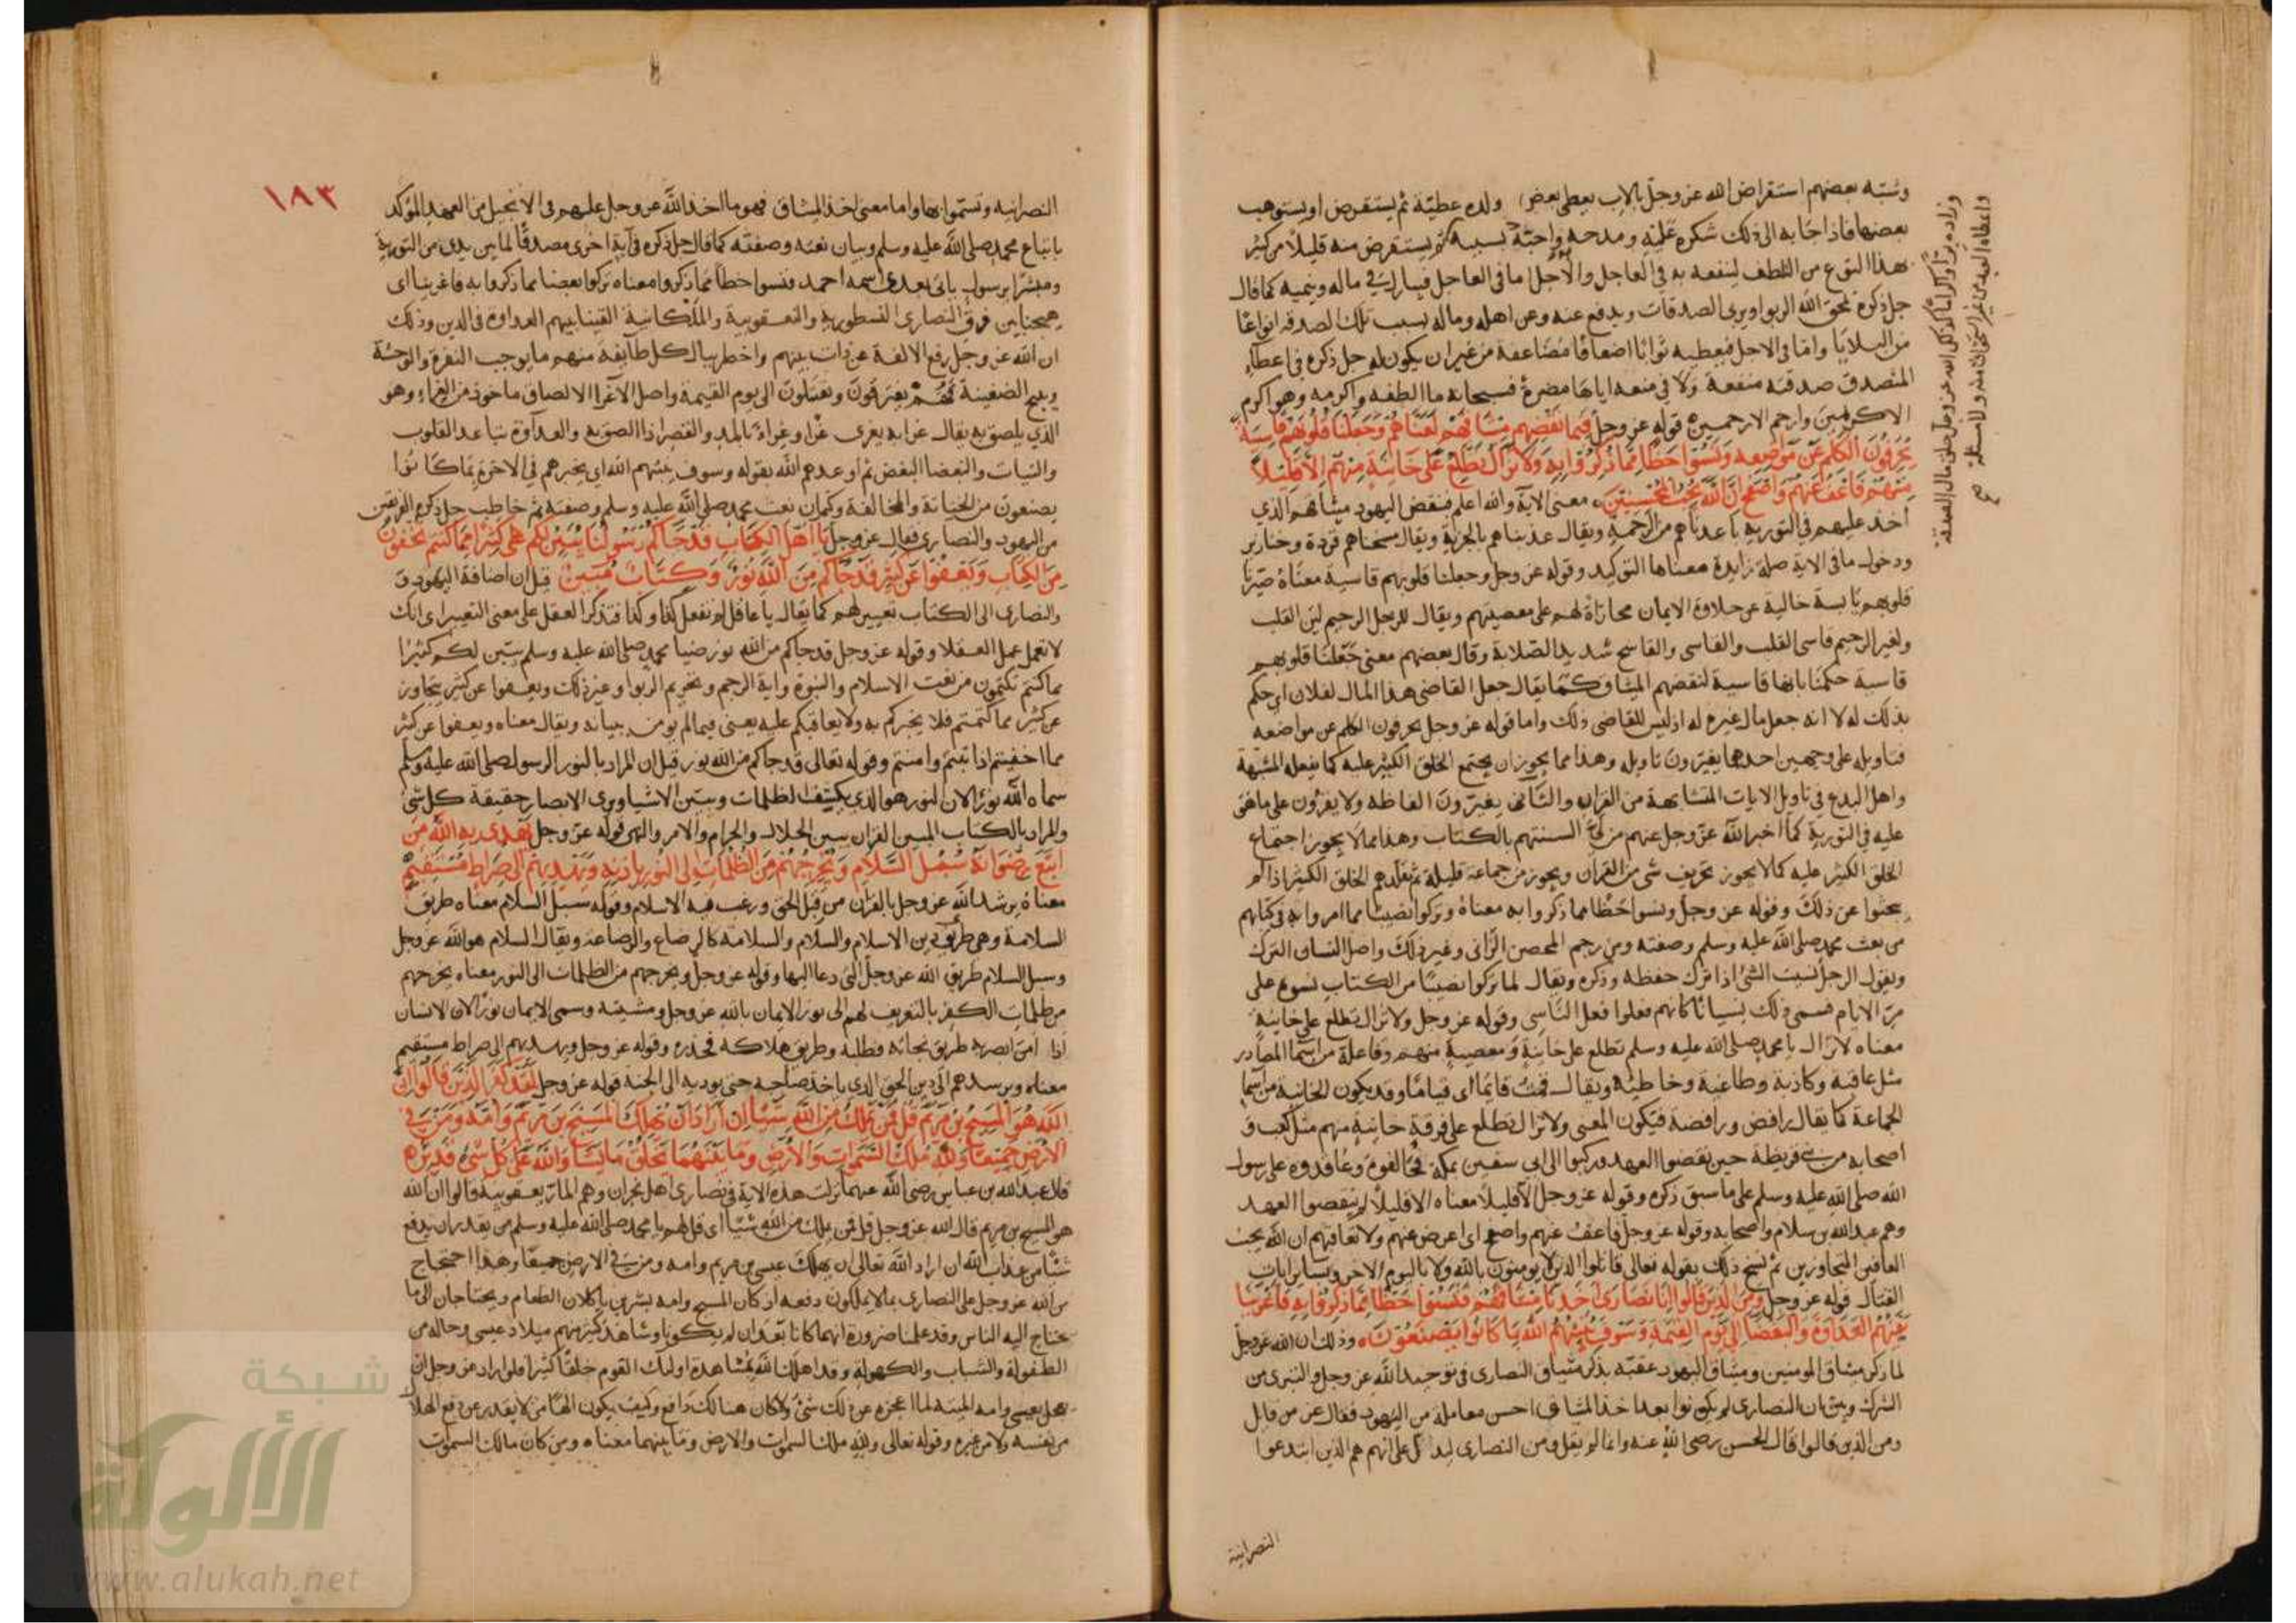 وشبه بعضهم استقراض الله عز وجل بالاب يعطي بعض ولده عطية ثم يستقرض او يستوهب
بعضها فاذا اجابه الى ذلك شكره عليه ومدحه واحبه بسببه ثم يستقرض منه قليلا من كثير
بهذا النوع من اللطف لينفعه به في العاجل والاجل اما في العاجل فيبارك في ماله وينميه كما قال
جل ذكره يمحق الله الربوا ويربى الصدقات ويدفع عنه وعن اهله وماله بسبب تلك الصدقه انواعا
من البلايا واما في الاجل فيعطيه ثوابا اضعافا مضاعفة من غير ان يكون له جل ذكره في اعطاء
المتصدق صدقته منفعة ولا في منعه اياها مضرة فسبحانه ما الطفه واكرمه وهو اكرم
الاكرمين وارحم الارحمين قوله عز وجل فبما نقضهم ميثاقهم لعناهم وجعلنا قلوبهم قاسية
يحرفون الكلم عن مواضعه ونسوا حظا مما ذكروا به ولا تزال تطلع على خائنة منهم الا قليلا
منهم فاعف عنهم واصفح ان الله يحب المحسنين معنى الاية والله اعلم فبنقض اليهود ميثاقهم الذي
اخذ عليهم في التورية باعدناهم من الرحمة ويقال عذبناهم بالجزية ويقال مسخناهم قردة وخنازير
ودخول ما في الاية صلة زايدة معناها التوكيد وقوله عز وجل وجعلنا قلوبهم قاسية معناه صيرنا
قلوبهم يابسة خالية عن حلاوة الايمان مجازاة لهم على معصيتهم ويقال للرجل الرحيم لين القلب
ولغير الرحيم قاسى القلب والقاسى والقاسح شديد الصلابة وقال بعضهم معنى جعلنا قلوبهم
قاسية حكمنا بانها قاسية لنقضهم الميثاق كما يقال جعل القاضى هذا المال لفلان اى حكم
بذلك له لا انه جعل مال غيره له اذ ليس للقاضى ذلك واما قوله عز وجل يحرفون الكلم عن مواضعه
فتاويله على وجهين احدهما يغيرون تاويله وهذا مما يجوز ان يجتمع الخلق الكثير عليه كما يفعله المشبهة
واهل البدع في تاويل الايات المتشابهة من القران والثاني يغيرون الفاظه ولا يقرون على ما هى
عليه في التورية كما اخبر الله عز وجل عنهم من لي السنتهم بالكتاب وهذا مما لا يجوز اجتماع
الخلق الكثير عليه كما لا يجوز تحريف شى من القران ويجوز من جماعة قليلة ثم يقلدهم الخلق الكثير اذا لم
يبحثوا عن ذلك وقوله عز وجل ونسوا حظا مما ذكروا به معناه وتركوا نصيبا مما امروا به في كتابهم
من بعث محمد صلى الله عليه وسلم وصفته ومن رجم المحصن الزاني وغير ذلك واصل النسيان الترك
ويقول الرجل نسيت الشئ اذا ترك حفظه وذكره ويقال لما تركوا نصيبا من الكتاب نسوه على
مر الايام فسمى ذلك نسيانا كانهم فعلوا فعل الناسى وقوله عز وجل ولا تزال تطلع على خاينة
معناه لا تزال يا محمد صلى الله عليه وسلم تطلع على خاينة ومعصية منهم وفاعلة من اسما المصادر
مثل عاقبة وكاذبة وطاغية وخاطية ويقال قمت قايما اى قياما وقد يكون الخاينة من اسما
الجماعة كما يقال رافض ورافضة فيكون المعنى ولا تزال تطلع على فرقة خاينة منهم مثل كعب و
اصحابه من بني قريظة حين نقضوا العهد وركبوا الى ابي سفين بمكة وعاقدوه على رسول
الله صلى الله عليه وسلم على ما سبق ذكره وقوله عز وجل الا قليلا معناه الا قليلا لم ينقضوا العهد
وهم عبد الله بن سلام واصحابه وقوله عز وجل فاعف عنهم واصفح اى اعرض عنهم ولا تعاقبهم ان الله يحب
العافين المتجاوزين ثم نسخ ذلك بقوله تعالى قاتلوا الذين لا يومنون بالله ولا باليوم الاخر وبسائر ايات
القتال قوله عز وجل ومن الذين قالوا انا نصارى اخذنا ميثاقهم فنسوا حظا مما ذكروا به فاغرينا
بينهم العداوة والبغضا الى يوم القيمة وسوف ينبئهم الله بما كانوا يصنعون وذلك ان الله عز وجل
لما ذكر ميثاق المومنين وميثاق اليهود عقبه بذكر ميثاق النصارى في توحيد الله عز وجل والتبرى من
الشرك وبين ان النصارى لم يكونوا بعد اخذ الميثاق احسن معاملة من اليهود فقال عز من قايل
ومن الذين قالوا قال الحسن رضى الله عنه وانما لم يقل ومن النصارى ليدل على انهم هم الذين ابتدعوا
النصرانية
وزاده برا واكراما كذلك الله عز وجل خلق مال الصدقة
واعطاه العبد من غير استحقاق منه ولا مسئلة
صح
١٨٣
النصرانيه وتسموا بها واما معنى اخذ الميثاق فهو ما اخذ الله عز وجل عليهم في الانجيل من العهد المؤكد
باتباع محمد صلى الله عليه وسلم وبيان نعته وصفته كما قال جل ذكره في آية اخرى مصدقا لما بين يدى من التورية
ومبشرا برسول ياتى من بعدى اسمه احمد فنسوا حظا مما ذكروا معناه تركوا بعضا مما ذكروا به فاغرينا اى
هيجنا بين فرق النصارى النسطورية واليعقوبية والملكانية القينا بينهم العداوة في الدين وذلك
ان الله عز وجل رفع الالفة عن ذات بينهم واخطر ببال كل طايفة منهم ما يوجب النفرة والوحشة
ويهيج الضغينة فهم يفترقون ويقتتلون الى يوم القيمة واصل الاغرا الالصاق ماخوذ من الغراء وهو
الذي يلصق به يقال غرى به يغرى غرا وغراء بالمد والقصر اذا لصق به والعداوة تباعد القلوب
والنيات والبغضا البغض ثم اوعدهم الله بقوله وسوف ينبئهم الله اى يخبرهم في الاخرة بما كانوا
يصنعون من الخيانة والمخالفة وكتمان نعت محمد صلى الله عليه وسلم وصفته ثم خاطب جل ذكره الفريقين
من اليهود والنصارى فقال عز وجل يا اهل الكتاب قد جاكم رسولنا يبين لكم كثيرا مما كنتم تخفون
من الكتاب ويعفوا عن كثير قد جاكم من الله نور وكتاب مبين قيل ان اضافة اليهود و
والنصارى الى الكتاب تعيير لهم كما يقال يا عاقل لم تفعل كذا وكذا فتذكر العقل على معنى التعيير اى انك
لا تعمل عمل العقلا وقوله عز وجل قد جاكم من الله نور ضيا محمد صلى الله عليه وسلم يبين لكم كثيرا
مما كنتم تكتمون من نعت الاسلام والنبوة واية الرجم وتحريم الربوا وغير ذلك ويعفوا عن كثير يتجاوز
عن كثير مما كتمتم فلا يخبركم به ولا يعاقبكم عليه يعنى فيما لم يومر ببيانه ويقال معناه ويعفوا عن كثير
مما اخفيتم اذا تبتم وامنتم وقوله تعالى قد جاكم من الله نور قيل ان المراد بالنور الرسول صلى الله عليه وسلم
سماه الله نورا لان النور هو الذي يكشف الظلمات ويبين الاشيا ويرى الابصار حقيقة كل شئ
والمراد بالكتاب المبين القران يبين الحلال والحرام والامر والنهى قوله عز وجل يهدى به الله من
اتبع رضوانه سبل السلام ويخرجهم من الظلمات الى النور باذنه ويهديهم الى صراط مستقيم
معناه يرشد الله عز وجل بالقران من قبل الحق ورغب فيه الاسلام وقوله سبل السلام معناه طريق
السلامة وهى طريق دين الاسلام والسلام والسلامة كالرضاع والرضاعة ويقال السلام هو الله عز وجل
وسبل السلام طريق الله عز وجل التى دعا اليها وقوله عز وجل ويخرجهم من الظلمات الى النور معناه يخرجهم
من ظلمات الكفر بالتعريف لهم الى نور الايمان بالله عز وجل ومشيته وسمى الايمان نورا لان الانسان
اذا امن ابصر به طريق نجاته فطلبه وطريق هلاكه فحذره وقوله عز وجل ويهديهم الى صراط مستقيم
معناه ويرشدهم الى دين الحق الذى ياخذ صاحبه حتى يوديه الى الجنة قوله عز وجل لقد كفر الذين قالوا ان
الله هو المسيح بن مريم قل فمن يملك من الله شيئا ان اراد ان يهلك المسيح بن مريم وامه ومن في
الارض جميعا ولله ملك السموات والارض وما بينهما يخلق ما يشا والله على كل شئ قدير
قال عبد الله بن عباس رضى الله عنهما نزلت هذه الاية في نصارى اهل نجران وهم الماريعقوبية قالوا ان الله
هو المسيح بن مريم قال الله عز وجل قل فمن يملك من الله شيئا اى قل لهم يا محمد صلى الله عليه وسلم من يقدر ان يدفع
شيئا من عذاب الله ان اراد الله تعالى ان يهلك عيسى بن مريم وامه ومن في الارض جميعا وهذا احتجاج
من الله عز وجل على النصارى بما لا يملكون دفعه اذ كان المسيح وامه بشرين ياكلان الطعام ويحتاجان الى ما
يحتاج اليه الناس وقد علمنا ضرورة انهما كانا بعد ان لم يكونا وشاهد كثير منهم ميلاد عيسى وحاله من
الطفولة والشباب والكهولة وقد اهلك الله بمشاهدة اولئك القوم خلقا كثيرا فلو اراد عز وجل ان
يهلك عيسى وامه الميتة لما اعجزه عن ذلك شئ ولا كان هنالك دافع وكيف يكون الها من لا يقدر عن دفع الهلاك
من نفسه ولا من غيره وقوله تعالى ولله ملك السموات والارض وما بينهما معناه ومن كان مالك السموات
شبكة
الألوكة
www.alukah.net